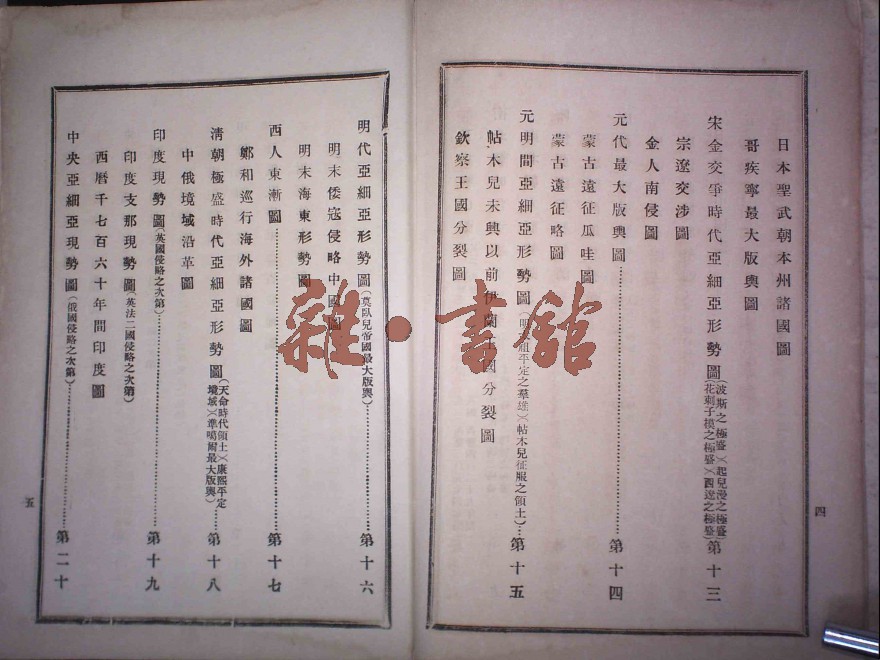 日本聖武朝本州諸國圖
哥疾寧最大版輿圖
宋金交爭時代亞細亞形勢圖(波斯之極盛)(起兒漫之極盛)(花剌子模之極盛)(西遼之極盛)第十三
宗遼交涉圖
金人南侵圖
元代最大版輿圖……第十四
蒙古遠征瓜哇圖
蒙古遠征略圖
元明間亞細亞形勢圖(明祖平定之羣雄)(帖木兒征服之領土)…第十五
帖木兒未興以前伊蘭國分裂圖
欽察王國分裂圖
四
明代亞細亞形勢圖(莫臥兒帝國最大版輿)……第十六
明末倭寇侵略中國圖
明末海東形勢圖
西人東漸圖……第十七
鄭和巡行海外諸國圖
清朝極盛時代亞細亞形勢圖(天命時代領土)(康熙平定境域)(準噶爾最大版輿)……第十八
中俄境域沿革圖
印度現勢圖(英國侵略之次第)……第十九
印度支那現勢圖(英法二國侵略之次第)
西曆千七百六十年間印度圖
中央亞細亞現勢圖(俄國侵略之次第)……第二十
五
雜·書館